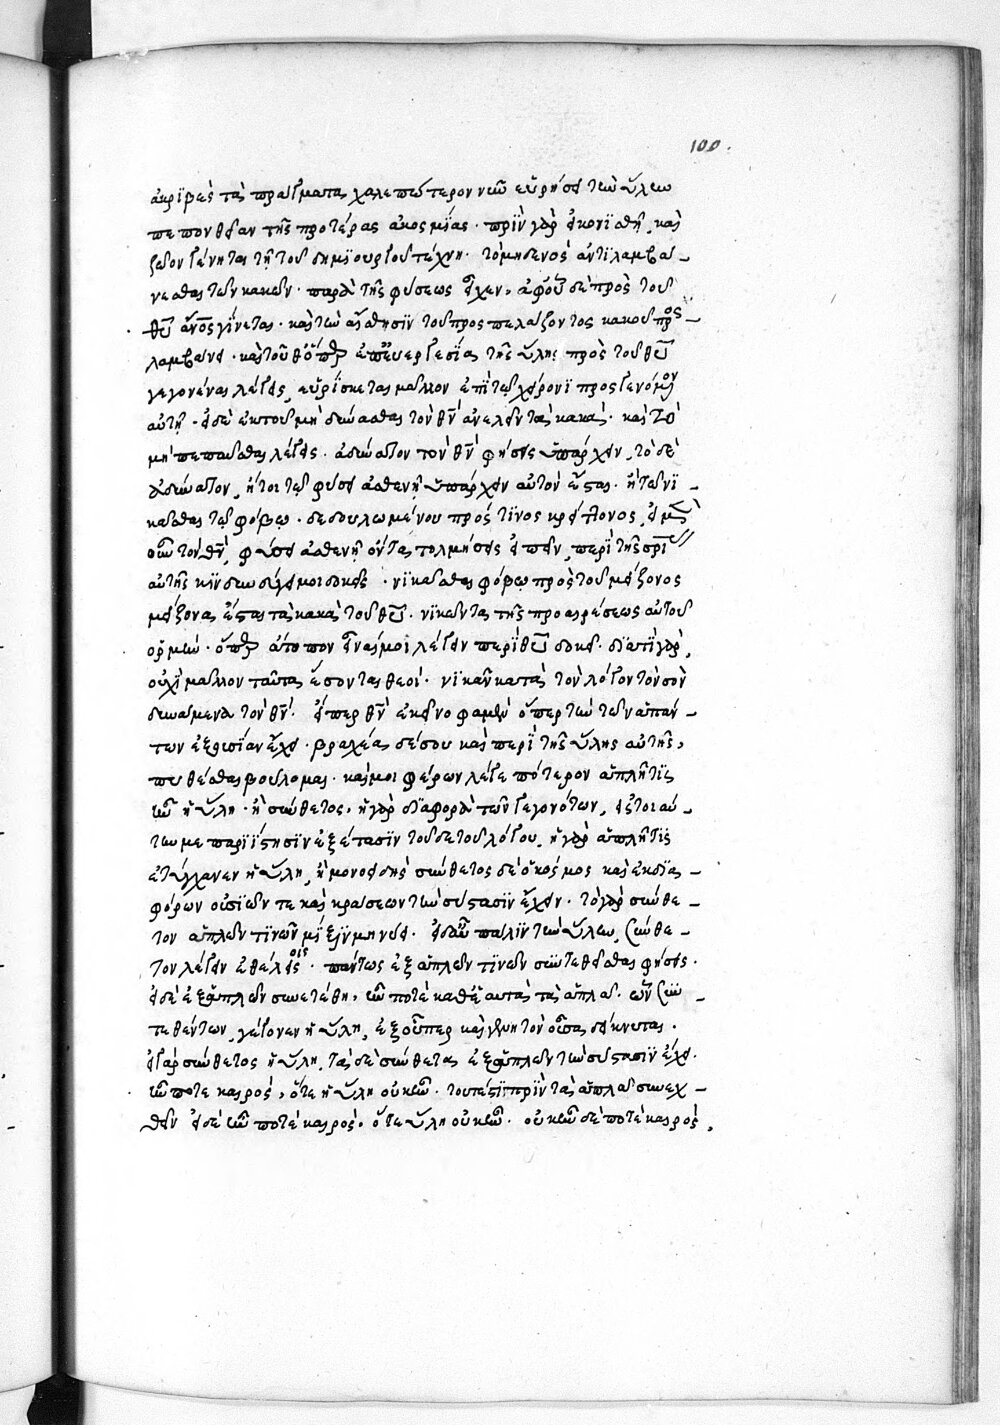 100.
ἀκριβὲς τὰ πράγματα, χαλεπώτερον νῦν εὑρήσει τὴν ὕλην
πεπονθέναι τῆς προτέρας ἀκοσμίας. πρὶν γὰρ διακριθῆ, καὶ
γένηται τῇ τοῦ δημιουργοῦ τέχνη. τὸ μηδενὸς ἀντιλαμβά-
νεσθαι τῶν κακῶν. παρὰ τῆς φύσεως εἶχεν, ἀφοῦ δὲ πρὸς τοῦ
θῦ ἄνος γίνεται. καὶ τὴν αἴσθησιν τοῦ προσπελάζοντος κακοῦ προσ-
λαμβάνει. καὶ τοῦθ' ὅπερ ἐπ' εὐεργεσία τῆς ὕλης πρὸς τοῦ θῦ
γεγονέναι λέγεις, εὑρίσκεται μᾶλλον ἐπὶ τῷ χείρονι προσγενόμενον
αὐτῇ. εἰ δὲ ἐκ τοῦ μὴ δύνασθαι τὸν θν ἀνελεῖν τὰ κακὰ. καὶ τὸ
μὴ πεπαῦσθαι λέγεις. ἀδύνατον τὸν θν φήσεις ὑπάρχειν, τὸ δὲ
ἀδύνατον, ἤτοι τῷ φύσει ἀσθενῆ ὑπάρχειν αὐτὸν ἔσται. ἢ τῷ νι-
κᾶσθαι τῷ φόβῳ. δεδουλωμένου πρός τινος κρείττονος, εἰ μὲν
οὖν τὸν θν, φύσει ἀσθενῆ ὄντα τολμήσεις εἰπεῖν, περὶ τῆς σρίας
αὐτῆς κινδυνεύειν μοι δοκεῖς. νικᾶσθαι φόβῳ πρὸς τοῦ μείζονος
μείζονα ἔσται τὰ κακὰ τοῦ θῦ. νικῶντα τῆς προαιρέσεως αὐτοῦ
ὁρμήν. ὅπερ ἄτοπον εἶναί μοι λέγειν περὶ θῦ δοκεῖ. διατί γὰρ,
οὐχὶ μᾶλλον ταῦτα ἔσονται θεοὶ. νικᾶν κατὰ τὸν λόγον τὸν σὸν
δυνάμενα τὸν θν. εἴπερ θν ἐκεῖνο φαμὲν ὅπερ τὴν τῶν ἁπάν-
των ἐξουσίαν ἔχει. βραχέα δέ σου καὶ περὶ τῆς ὕλης αὐτῆς,
πυθέσθαι βούλομαι. καί μοι φέρων λέγε πότερον ἁπλῆ τις
ἦν ἡ ὕλη. ἢ σύνθετος, ἡ γὰρ διαφορὰ τῶν γεγονότων, εἰς τοιαύ-
την με παριίστησιν ἐξέτασιν τοῦδε τοῦ λόγου, ἡ γὰρ ἁπλῆ τις
ἐτύγχανεν ἡ ὕλη, ἢ μονοειδὴς σύνθετος δὲ ὁ κόσμος καὶ ἐκ δια-
φόρων οὐσιῶν τε καὶ κράσεων τὴν σύστασιν ἔχειν. τὸ γὰρ σύνθε-
τον ἁπλῶν τινῶν μίξιν μηνύει. εἰ δ' αὖ πάλιν τὴν ὕλην, σύνθε-
τον λέγειν ἐθέλοις. πάντως ἐξ ἁπλῶν τινῶν συντεθεῖσθαι φήσεις.
εἰ δὲ ἐξ ἁπλῶν συνετέθη, ἦν ποτὲ καθ' ἑαυτὰ τὰ ἁπλᾶ. ὧν συν-
τεθέντων, γέγονεν ἡ ὕλη, ἐξ οὗπερ καὶ γενητὸν οὖσα δείκνυται.
εἰ γὰρ σύνθετος ἡ ὕλη, τὰ δὲ σύνθετα ἐξ ἁπλῶν τὴν σύστασιν ἔχει.
ἦν ποτε καιρὸς, ὅτε ἡ ὕλη οὐκ ἦν. τουτέστι πρὶν τὰ ἁπλᾶ συνελ-
θεῖν εἰ δὲ ἦν ποτὲ καιρὸς, ὅτε ὕλη οὐκ ἦν. οὐκ ἦν δὲ ποτὲ καιρὸς,